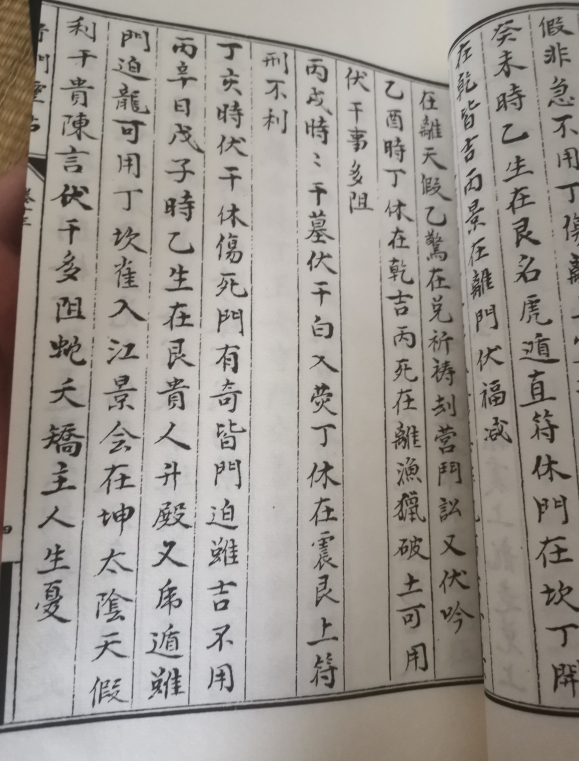 假非急不用丁傷離
癸未時乙生在艮名虎遁直符休門在坎丁開
在乾皆吉丙景在離門伏福减
在離天假乙驚在兌祈祷刦营鬥訟又伏吟
乙酉時丁休在乾吉丙死在離漁獵破土可用
伏干事多阻
丙戌時〻干墓伏干白入荧丁休在震艮上符
刑不利
丁亥時伏干休傷死門有奇皆門迫雖吉不用
丙辛日戊子時乙生在艮貴人升殿又乕遁雖
門迫龍可用丁坎雀入江景会在坤太陰天假
利干貴陳言伏干多阻蛇夭矯主人生憂
卷三
四